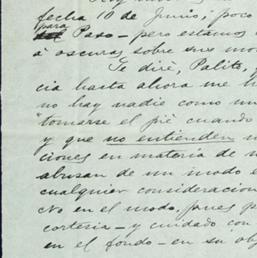 fecha 10 de Junio, poco
para Paso - pero estamos
á oscuras sobre sus mo
Te diré, Palita,
cia hasta ahora me h
no hay nadie como un
tomarse el pié cuando
y que no entienden
ciones en materia de
abusan de un modo e
cualquier consideracion
No en el modo, pues p
cortesia - y cuidado con
en el fondo - en su obj